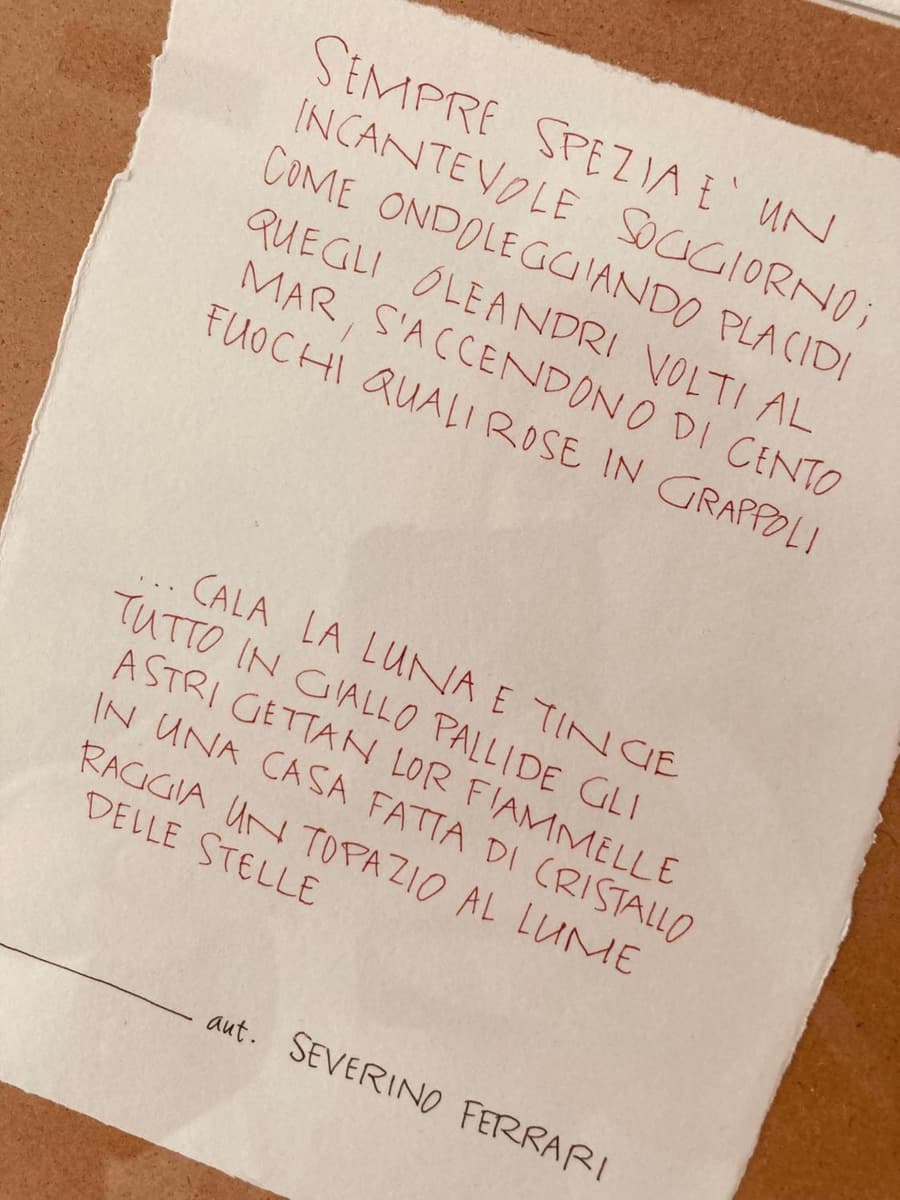 SEMPRE SPEZIA E' UN
INCANTEVOLE SOGGIORNO;
COME ONDOLEGGIANDO PLACIDI
QUEGLI OLEANDRI VOLTI AL
MAR, S'ACCENDONO DI CENTO
FUOCHI QUALI ROSE IN GRAPPOLI
... CALA LA LUNA E TINGE
TUTTO IN GIALLO PALLIDE GLI
ASTRI GETTAN LOR FIAMMELLE
IN UNA CASA FATTA DI CRISTALLO
RAGGIA UN TOPAZIO AL LUME
DELLE STELLE
aut. SEVERINO FERRARI